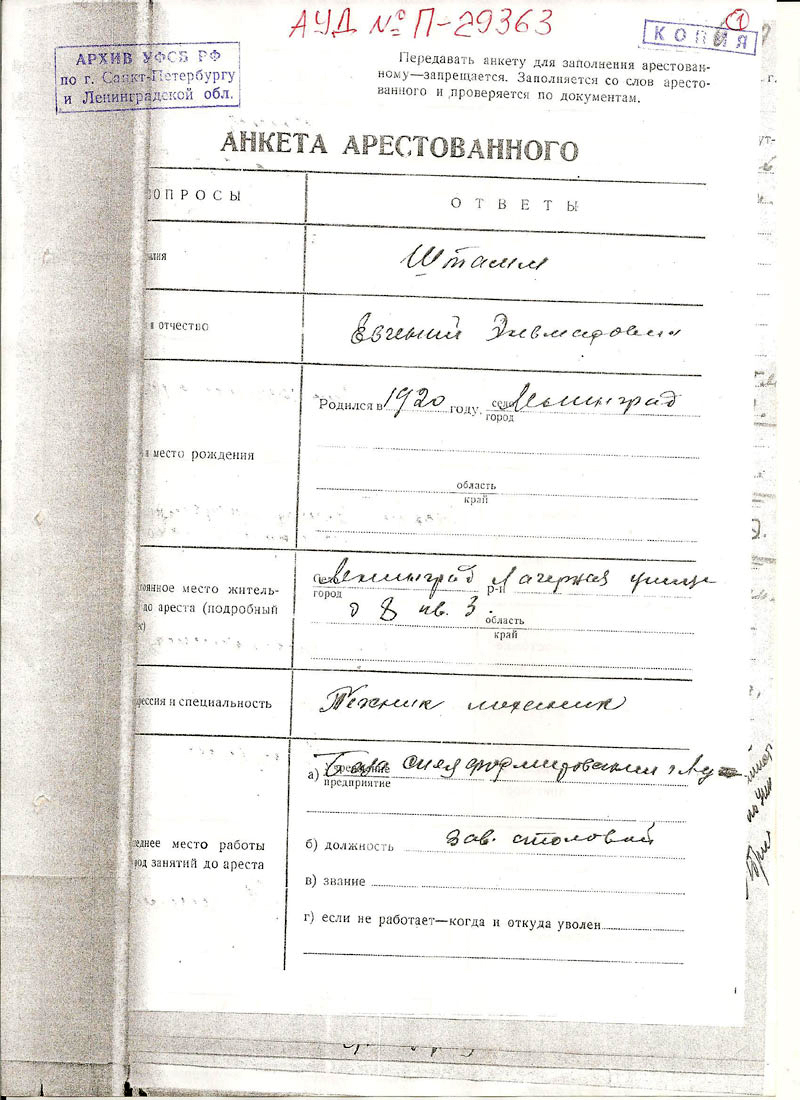 АУД № П-29363
1
КОПИЯ
АРХИВ УФСБ РФ
по г. Санкт-Петербургу
и Ленинградской обл.
Передавать анкету для заполнения арестован-
ному—запрещается. Заполняется со слов аресто-
ванного и проверяется по документам.
АНКЕТА АРЕСТОВАННОГО
ОПРОСЫ
ОТВЕТЫ
лия
Штамм
и отчество
Евгений
место рождения
Родился в 1920 году, село Ленинград
город
область
край
тоянное место житель-
до ареста (подробный
Ленинград р-н Лагерная улица
город
д 8 кв. 3.
область
край
ессия и специальность
Техник механик
еднее место работы
род занятий до ареста
а) учреждение База формирования
предприятие
б) должность зав. столовой
в) звание
г) если не работает—когда и откуда уволен